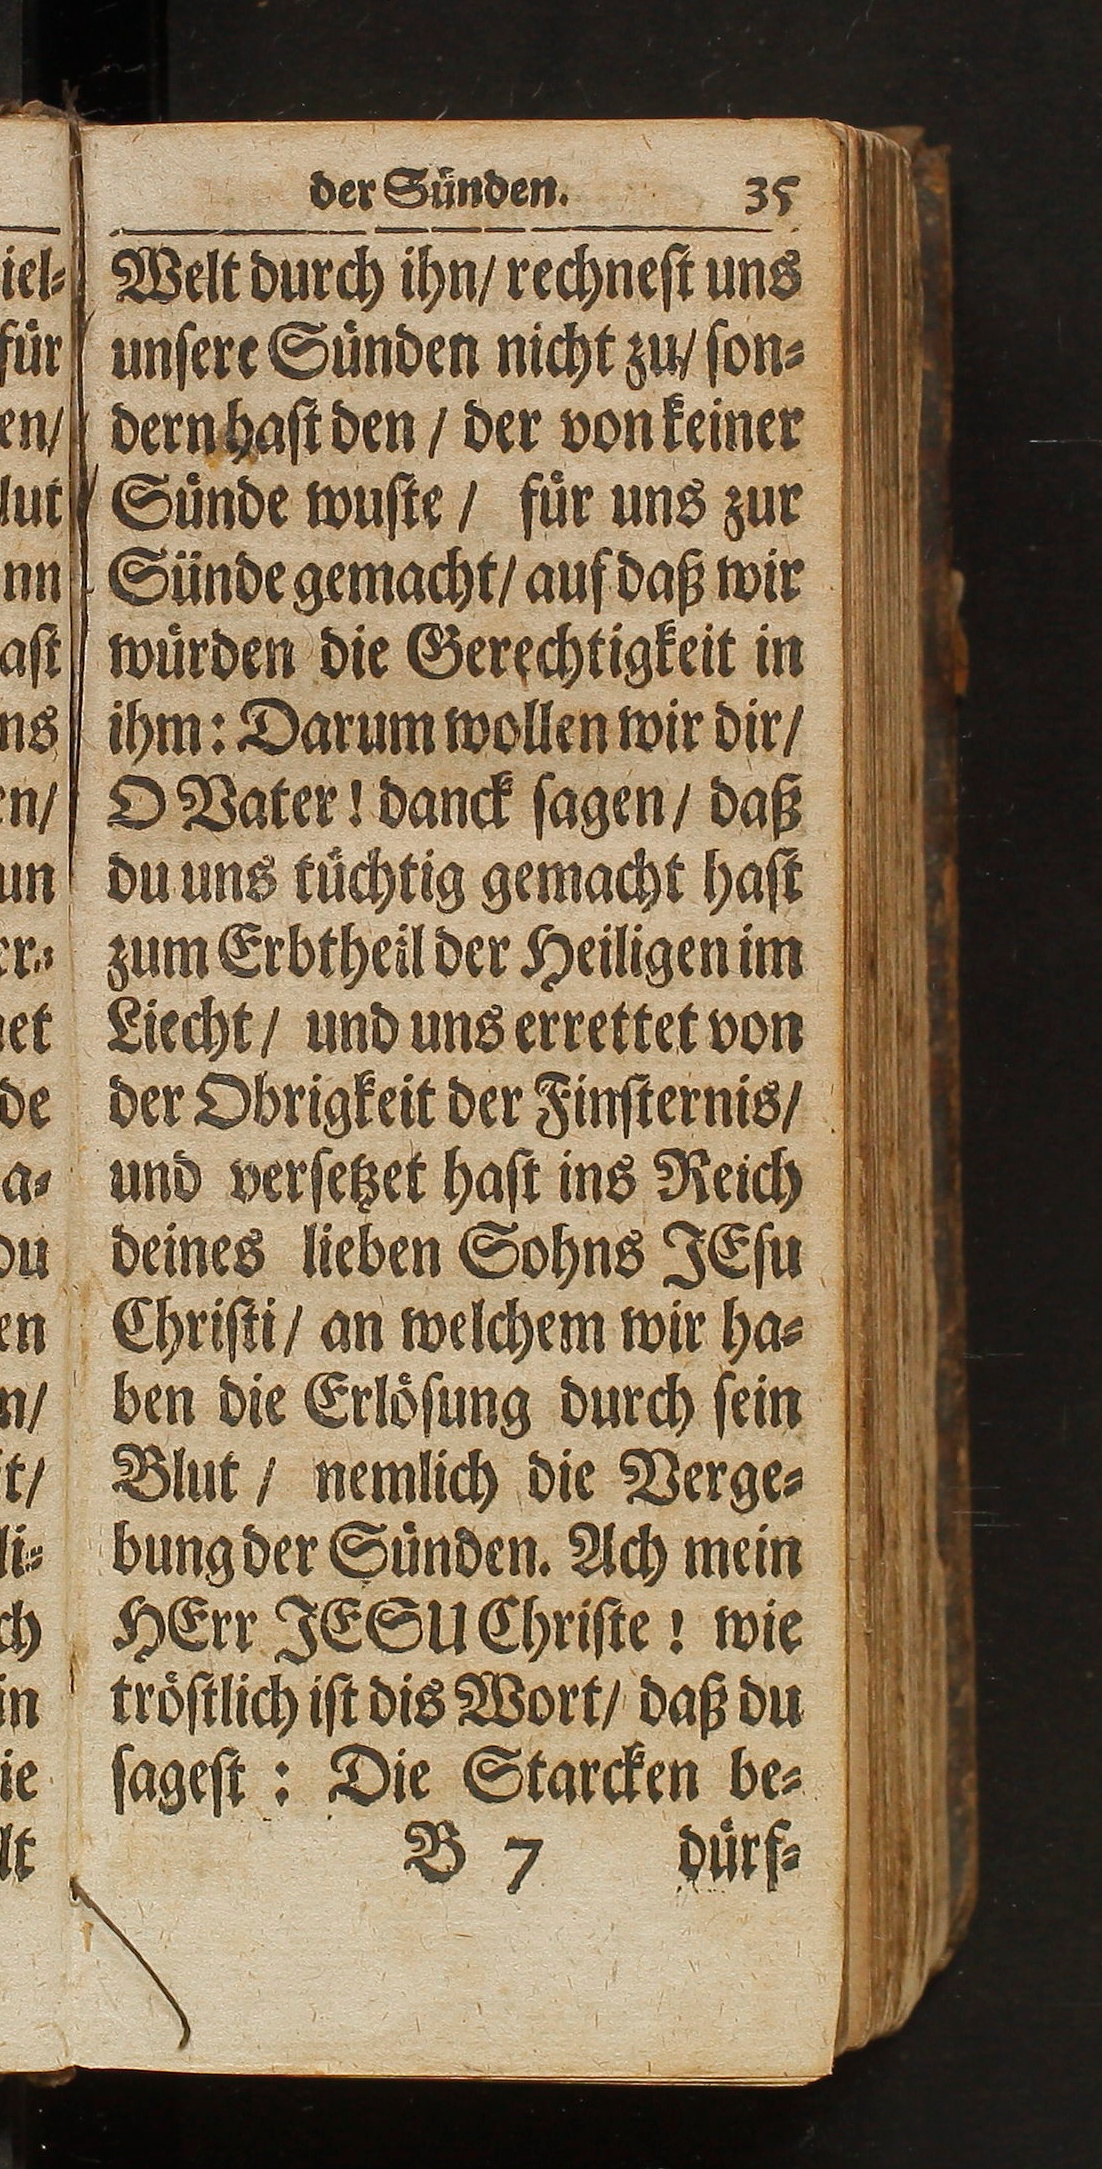 der Sünden. 35
Welt durch ihn/ rechnest uns
unsere Sünden nicht zu/ son-
dern hast den / der von keiner
Sünde wuste / für uns zur
Sünde gemacht/ auf daß wir
würden die Gerechtigkeit in
ihm: Darum wollen wir dir/
O Vater! danck sagen/ daß
du uns tüchtig gemacht hast
zum Erbtheil der Heiligen im
Liecht/ und uns errettet von
der Obrigkeit der Finsternis/
und versetzet hast ins Reich
deines lieben Sohns JEsu
Christi/ an welchem wir ha-
ben die Erlösung durch sein
Blut / nemlich die Verge-
bung der Sünden. Ach mein
HErr JESU Christe! wie
tröstlich ist dis Wort/ daß du
sagest: Die Starcken be-
B 7 dürf-